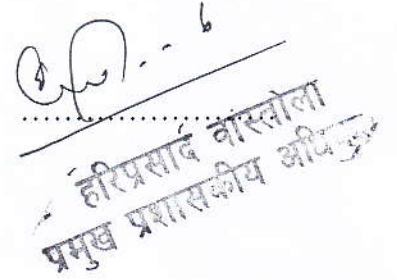 हरिप्रसाद वास्तोला
प्रमुख प्रशासकीय